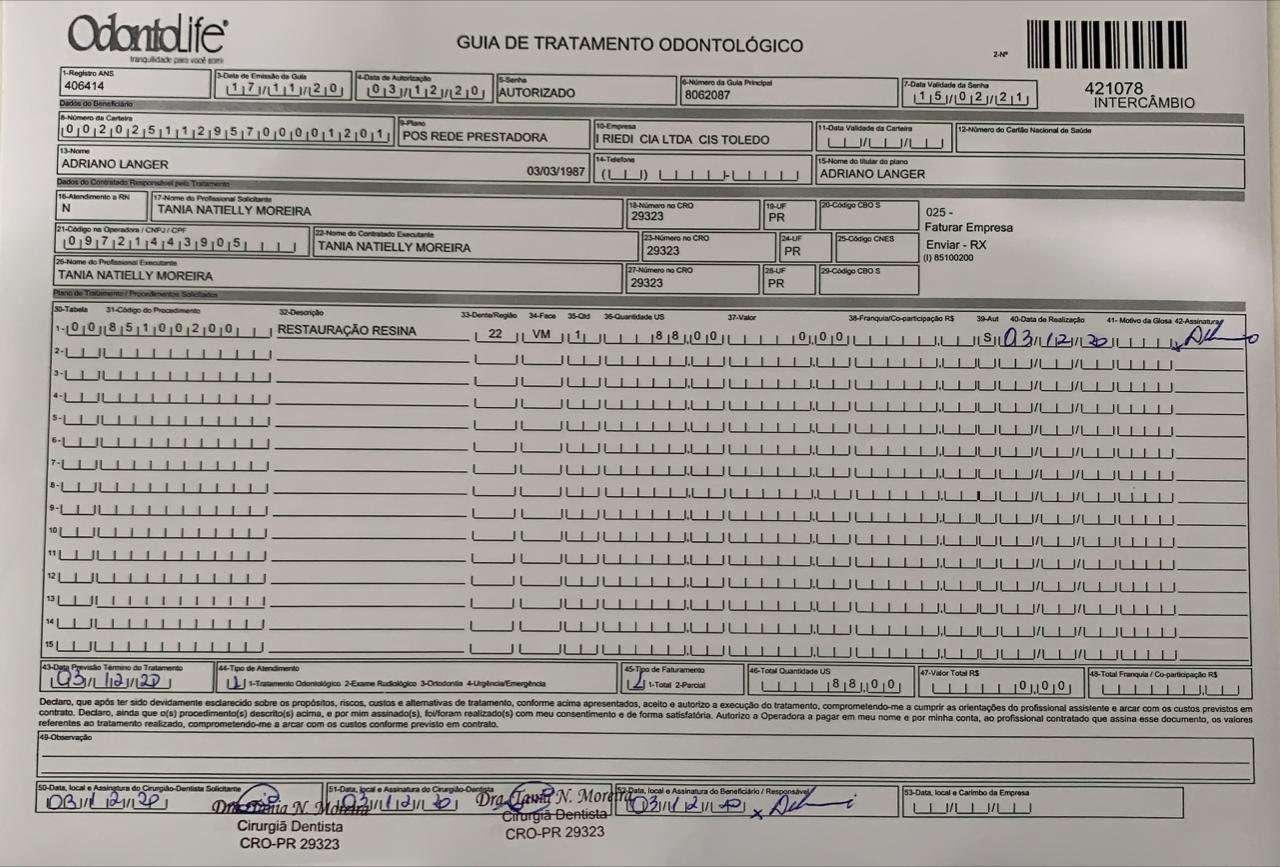 OdontoLife®
tranquilidade para você sorrir
GUIA DE TRATAMENTO ODONTOLÓGICO
2-Nº
421078
INTERCÂMBIO
1-Registro ANS
406414
3-Data de Emissão da Guia
17/11/20
4-Data de Autorização
03/12/20
5-Senha
AUTORIZADO
6-Número da Guia Principal
8062087
7-Data Validade da Senha
15/02/21
Dados do Beneficiário
8-Número da Carteira
00202511295700001201
9-Plano
POS REDE PRESTADORA
10-Empresa
I RIEDI CIA LTDA CIS TOLEDO
11-Data Validade da Carteira
12-Número do Cartão Nacional de Saúde
13-Nome
ADRIANO LANGER 03/03/1987
14-Telefone
15-Nome do titular do plano
ADRIANO LANGER
Dados do Contratado Responsável pelo Tratamento
16-Atendimento a RN
N
17-Nome do Profissional Solicitante
TANIA NATIELLY MOREIRA
18-Número no CRO
29323
19-UF
PR
20-Código CBO S
025 -
Faturar Empresa
Enviar - RX
(I) 85100200
21-Código na Operadora / CNPJ / CPF
09721443905
22-Nome do Contratado Executante
TANIA NATIELLY MOREIRA
23-Número no CRO
29323
24-UF
PR
25-Código CNES
26-Nome do Profissional Executante
TANIA NATIELLY MOREIRA
27-Número no CRO
29323
28-UF
PR
29-Código CBO S
Plano de Tratamento / Procedimentos Solicitados
30-Tabela 31-Código do Procedimento 32-Descrição 33-Dente/Região 34-Face 35-Qtd 36-Quantidade US 37-Valor 38-Franquia/Co-participação R$ 39-Aut 40-Data de Realização 41- Motivo da Glosa 42-Assinatura
1- 00 85100200 RESTAURAÇÃO RESINA 22 VM 1 88,00 0,00 S 03/12/20
2-
3-
4-
5-
6-
7-
8-
9-
10
11
12
13
14
15
43-Data Previsão Término do Tratamento
03/12/20
44-Tipo de Atendimento
1 1-Tratamento Odontológico 2-Exame Radiológico 3-Ortodontia 4-Urgência/Emergência
45-Tipo de Faturamento
1-Total 2-Parcial
46-Total Quantidade US
88,00
47-Valor Total R$
0,00
48-Total Franquia / Co-participação R$
Declaro, que após ter sido devidamente esclarecido sobre os propósitos, riscos, custos e alternativas de tratamento, conforme acima apresentados, aceito e autorizo a execução do tratamento, comprometendo-me a cumprir as orientações do profissional assistente e arcar com os custos previstos em
contrato. Declaro, ainda que o(s) procedimento(s) descrito(s) acima, e por mim assinado(s), foi/foram realizado(s) com meu consentimento e de forma satisfatória. Autorizo a Operadora a pagar em meu nome e por minha conta, ao profissional contratado que assina esse documento, os valores
referentes ao tratamento realizado, comprometendo-me a arcar com os custos conforme previsto em contrato.
49-Observação
50-Data, local e Assinatura do Cirurgião-Dentista Solicitante
03/12/20
Dra. Tania N. Moreira
Cirurgiã Dentista
CRO-PR 29323
51-Data, local e Assinatura do Cirurgião-Dentista
03/12/20
Dra. Tania N. Moreira
Cirurgiã Dentista
CRO-PR 29323
52-Data, local e Assinatura do Beneficiário / Responsável
03/12/20
53-Data, local e Carimbo da Empresa